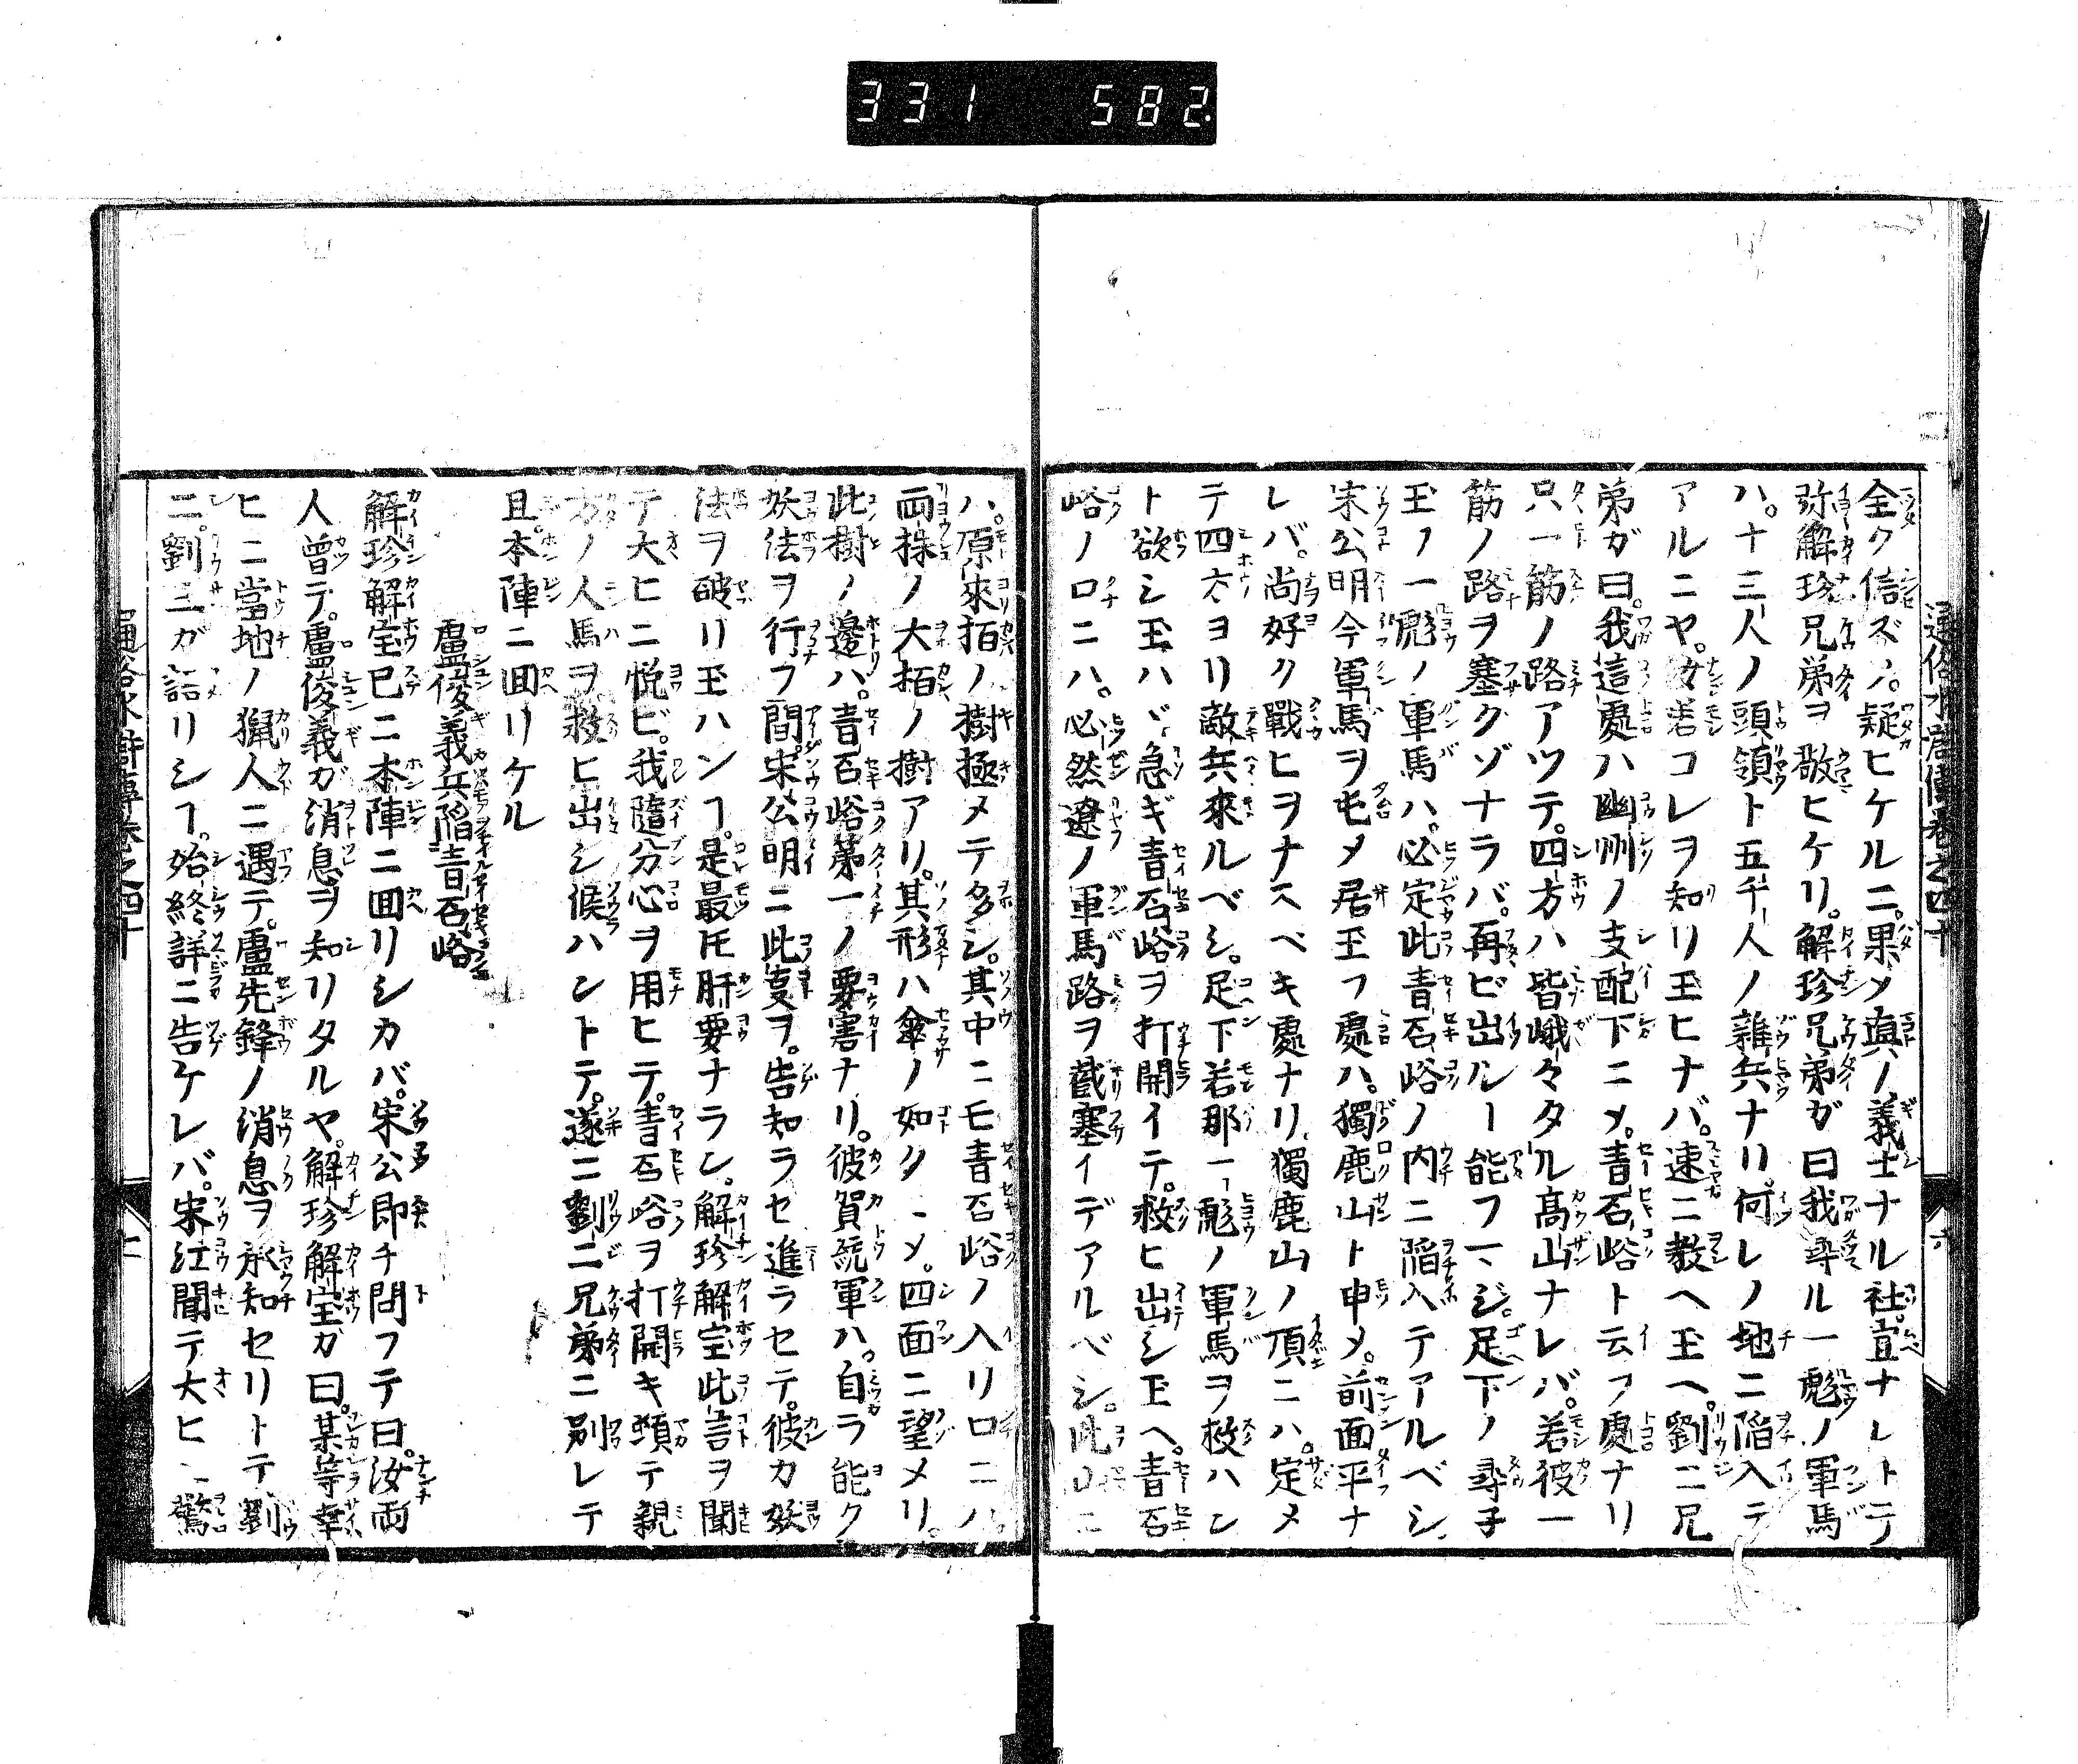 331 582
通俗水滸傳卷之四十
全ク信ズ。疑ヒケルニ。果〆真ノ義士ナル社。宜ナレトテ
弥解珍兄弟ヲ敬ヒケリ。解珍兄弟ガ曰我尋ル一彪ノ軍馬
ハ。十三人ノ頭領ト五千人ノ雜兵ナリ。何レノ地ニ陷入テ
アルニヤ。汝若コレヲ知リ玉ヒナバ。速ニ教ヘ玉ヘ。劉二兄
弟ガ曰。我這處ハ幽州ノ支配下ニ〆。青石峪ト云フ處ナリ
只一筋ノ路アツテ。四方ハ皆峨々タル高山ナレバ。若彼一
筋ノ路ヲ塞クゾナラバ。再ビ出ルヿ能フマジ。足下ノ尋子
玉フ一彪ノ軍馬ハ。必定此青石峪ノ内ニ陷入テアルベシ
宋公明今軍馬ヲ屯メ居玉フ處ハ。獨鹿山ト申〆。前面平ナ
レバ。尚好ク戰ヒヲナスベキ處ナリ獨鹿山ノ頂ニハ。定メ
テ四方ヨリ敵兵來ルベシ。足下若那一彪ノ軍馬ヲ救ハン
ト欲シ玉ハヾ急ギ青石峪ヲ打開イテ。救ヒ出シ玉ヘ。青石
峪ノ口ニハ。必然遼ノ軍馬路ヲ截塞イデアルベシ。此山ニ
ハ。原來栢ノ樹極メテ多シ。其中ニモ青石峪ノ入リ口ニハ
兩株ノ大栢ノ樹アリ。其形ハ傘ノ如クニ〆。四面ニ望メリ。
此樹ノ邊ハ。青石峪第一ノ要害ナリ。彼賀統軍ハ。自ラ能ク
妖法ヲ行フ間。宋公明ニ此叓ヲ。告知ラセ進ラセテ。彼カ妖
法ヲ破リ玉ハンヿ。是最モ肝要ナラン。解珍解宝此言ヲ聞
テ大ヒニ悦ビ。我隨分心ヲ用ヒテ。青石峪ヲ打開キ頭テ親
方ノ人馬ヲ救ヒ出シ候ハントテ。遂ニ劉二兄弟ニ別レテ
且。本陣ニ回リケル
盧俊義兵陷青石峪
解珍解宝已ニ本陣ニ回リシカバ。宋公即チ問フテ曰。汝兩
人曾テ。盧俊義ガ消息ヲ知リタルヤ。解珍解宝ガ曰。某等幸
ヒニ當地ノ獵人ニ遇テ。盧先鋒ノ消息ヲ承知セリトテ劉
二。劉三ガ語リシヿ。始終詳ニ告ケレバ。宋江聞テ大ヒニ驚
通俗水滸傳卷之四十